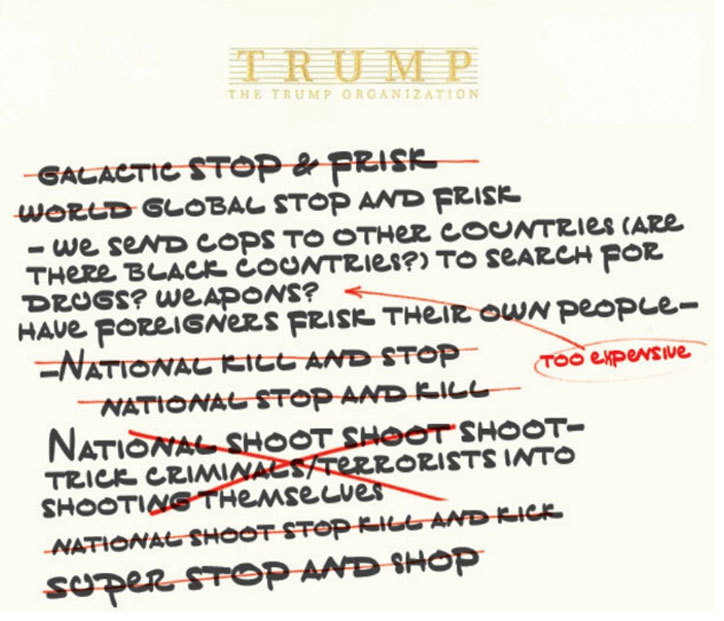 TRUMP
THE TRUMP ORGANIZATION
GALACTIC STOP & FRISK
WORLD GLOBAL STOP AND FRISK
- WE SEND COPS TO OTHER COUNTRIES (ARE
THERE BLACK COUNTRIES?) TO SEARCH FOR
DRUGS? WEAPONS?
HAVE FOREIGNERS FRISK THEIR OWN PEOPLE-
TOO EXPENSIVE
-NATIONAL KILL AND STOP
NATIONAL STOP AND KILL
NATIONAL SHOOT SHOOT SHOOT-
TRICK CRIMINALS/TERRORISTS INTO
SHOOTING THEMSELVES
NATIONAL SHOOT STOP KILL AND KICK
SUPER STOP AND SHOP